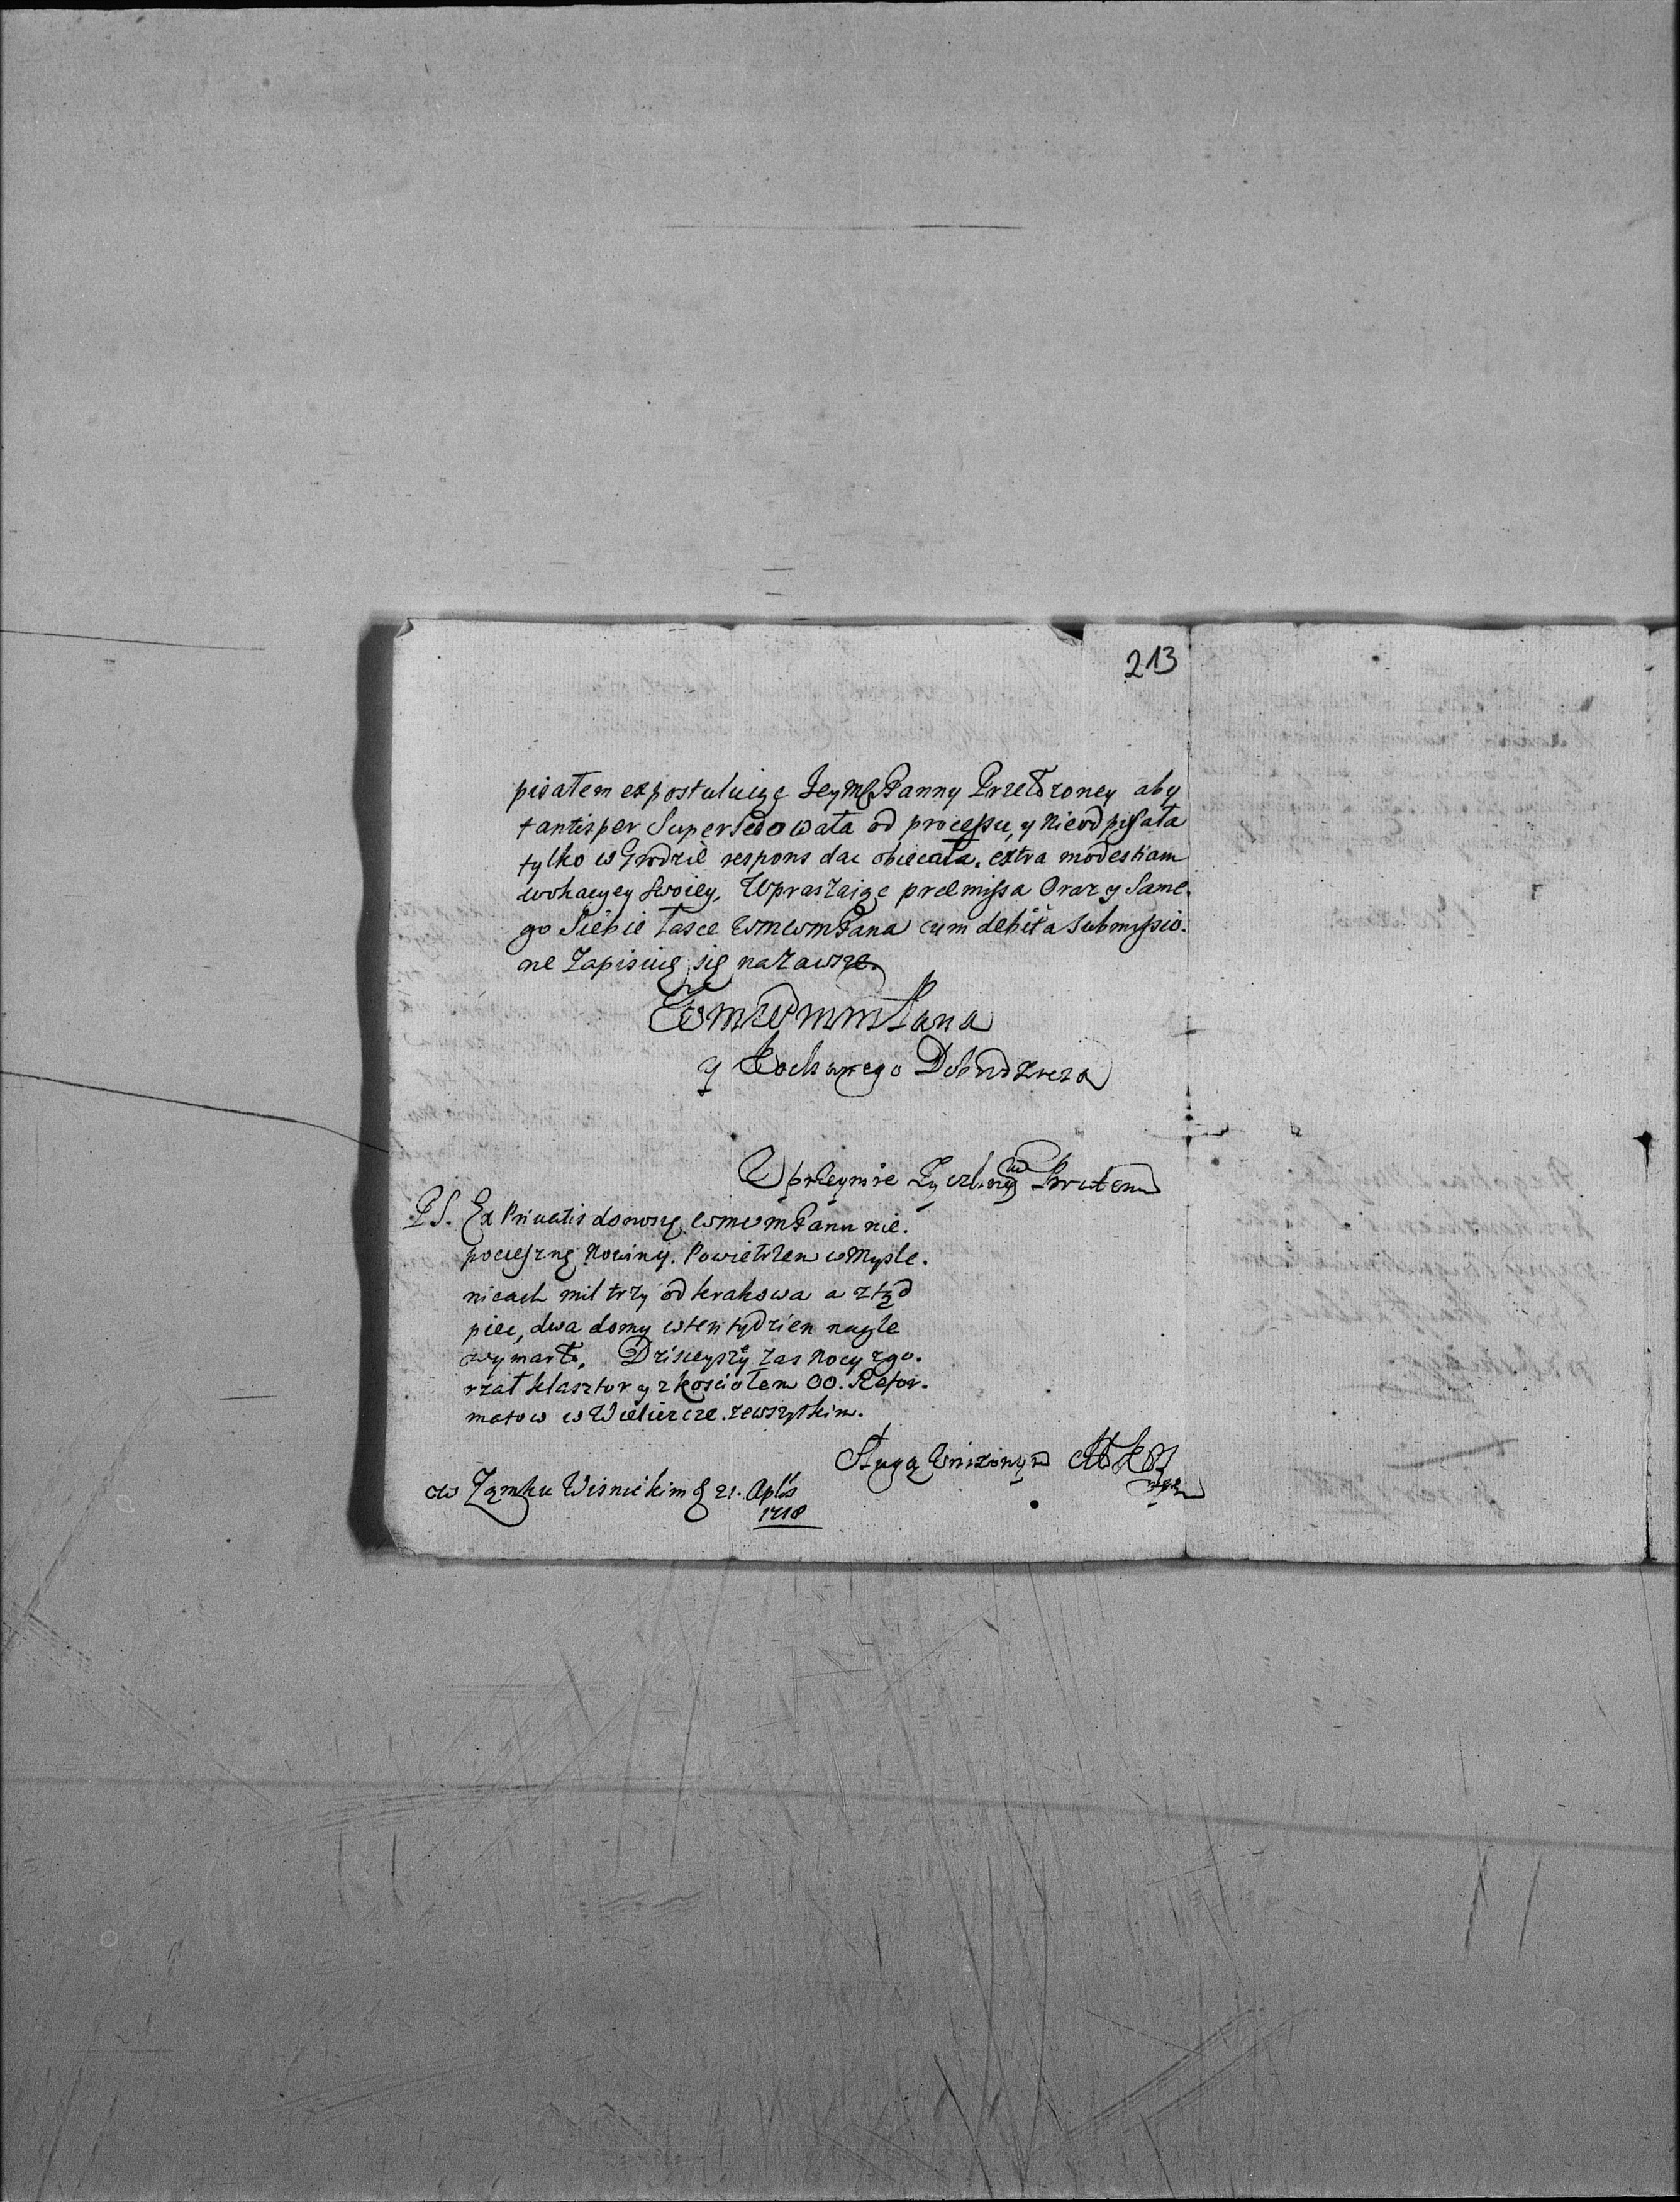 213
pisałem expostuluiąc Jeymć Panny Przełożoney aby
tantisper Supersedowała od processu, y nieodpisała
tylko w Grodzie respons dac obiecała. extra modestiam
wokacyey Swoiey. Upraszaiąc premissa Oraz y Same.
go Siebie łasce WmWmPana cum debita submissio.
ne Zapisuię się nazawsze.
WmWmmPana
y Kochanego Dobrodzieia
Uprzeymie Zyczliwy
PS. Ex Priuatis donoszę WmWmPanu nie.
pocieszną Nowinę. Powietrzem w Mysle.
nicach mil trzy od Krakowa a ztąd
pięc, dwa domy w ten tydzien nagle
wymarło. Dzisieyszy zas Nocy zgo.
rzał klasztor y z kosciołem OO. Refor.
matow w Wieliczce zewszytkim.
Sługa Unizony
w Zamku Wisnickim d 21. Aplis
1718